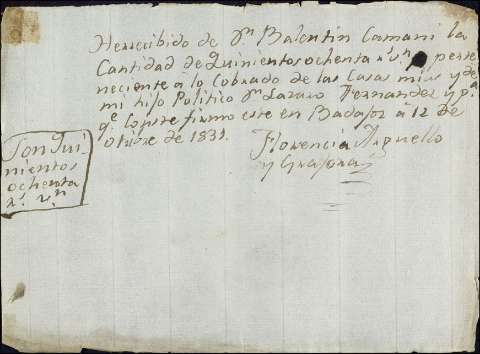 Herrecibido de Dn Balentin Camani la
Cantidad de Quinientos ochenta rs. vn. perte
neciente á lo Cobrado de las Casas mias y de
mi hijo Politico Dn Lazaro Fernandez y pa
qe. coste firmo este en Badajoz á 12 De
otubre de 1831.
Florencia Arguello
y Grajera
Son Qui
nientos
ochenta
rs. vn